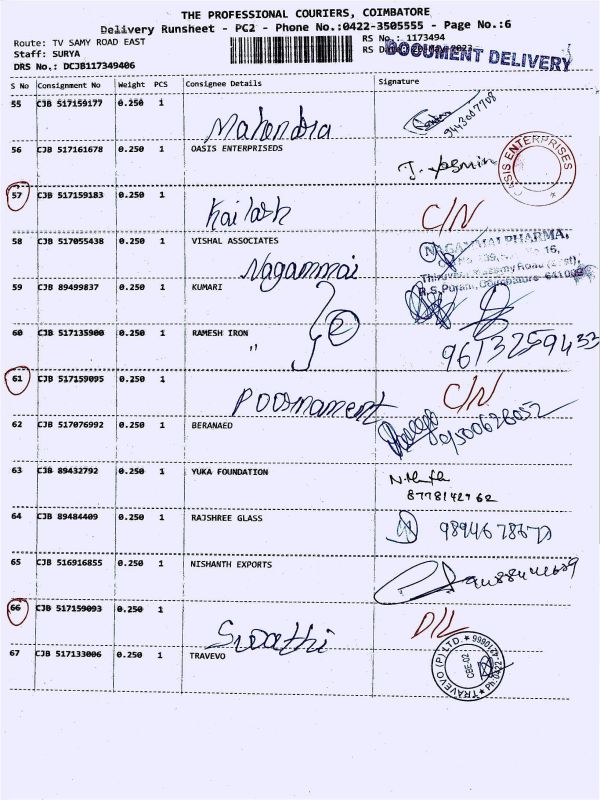 THE PROFESSIONAL COURIERS, COIMBATORE
Delivery Runsheet - PC2 - Phone No.:0422-3505555 - Page No.:6
Route: TV SAMY ROAD EAST RS No.: 1173494
Staff: SURYA RS Date: 20-May-2023
DOCUMENT DELIVERY
DRS No.: DCJB117349406
S No Consignment No Weight PCS Consignee Details Signature
55 CJB 517159177 0.250 1 Mahendra
56 CJB 517161678 0.250 1 OASIS ENTERPRISEDS
OASIS ENTERPRISES
57 CJB 517159183 0.250 1 Kailash C/N
58 CJB 517055438 0.250 1 VISHAL ASSOCIATES
NAGAMMAI PHARMA,
Nagammai
R.S.Puram, Coimbatore 641002
59 CJB 89499837 0.250 1 KUMARI
60 CJB 517135900 0.250 1 RAMESH IRON 9613259433
61 CJB 517159095 0.250 1 Poornament C/N
62 CJB 517076992 0.250 1 BERANAED
63 CJB 89432792 0.250 1 YUKA FOUNDATION
8778142962
64 CJB 89484409 0.250 1 RAJSHREE GLASS
65 CJB 516916855 0.250 1 NISHANTH EXPORTS
66 CJB 517159093 0.250 1 Swathi D/L
67 CJB 517133006 0.250 1 TRAVEVO
TRAVEVO (P) LTD.
CBE-02